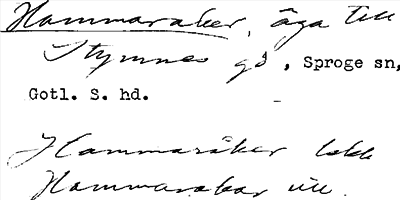 Hammaraker, äga till
Stymnes gd, Sproge sn,
Gotl. S. hd.
Hammaråker
Hammarakar